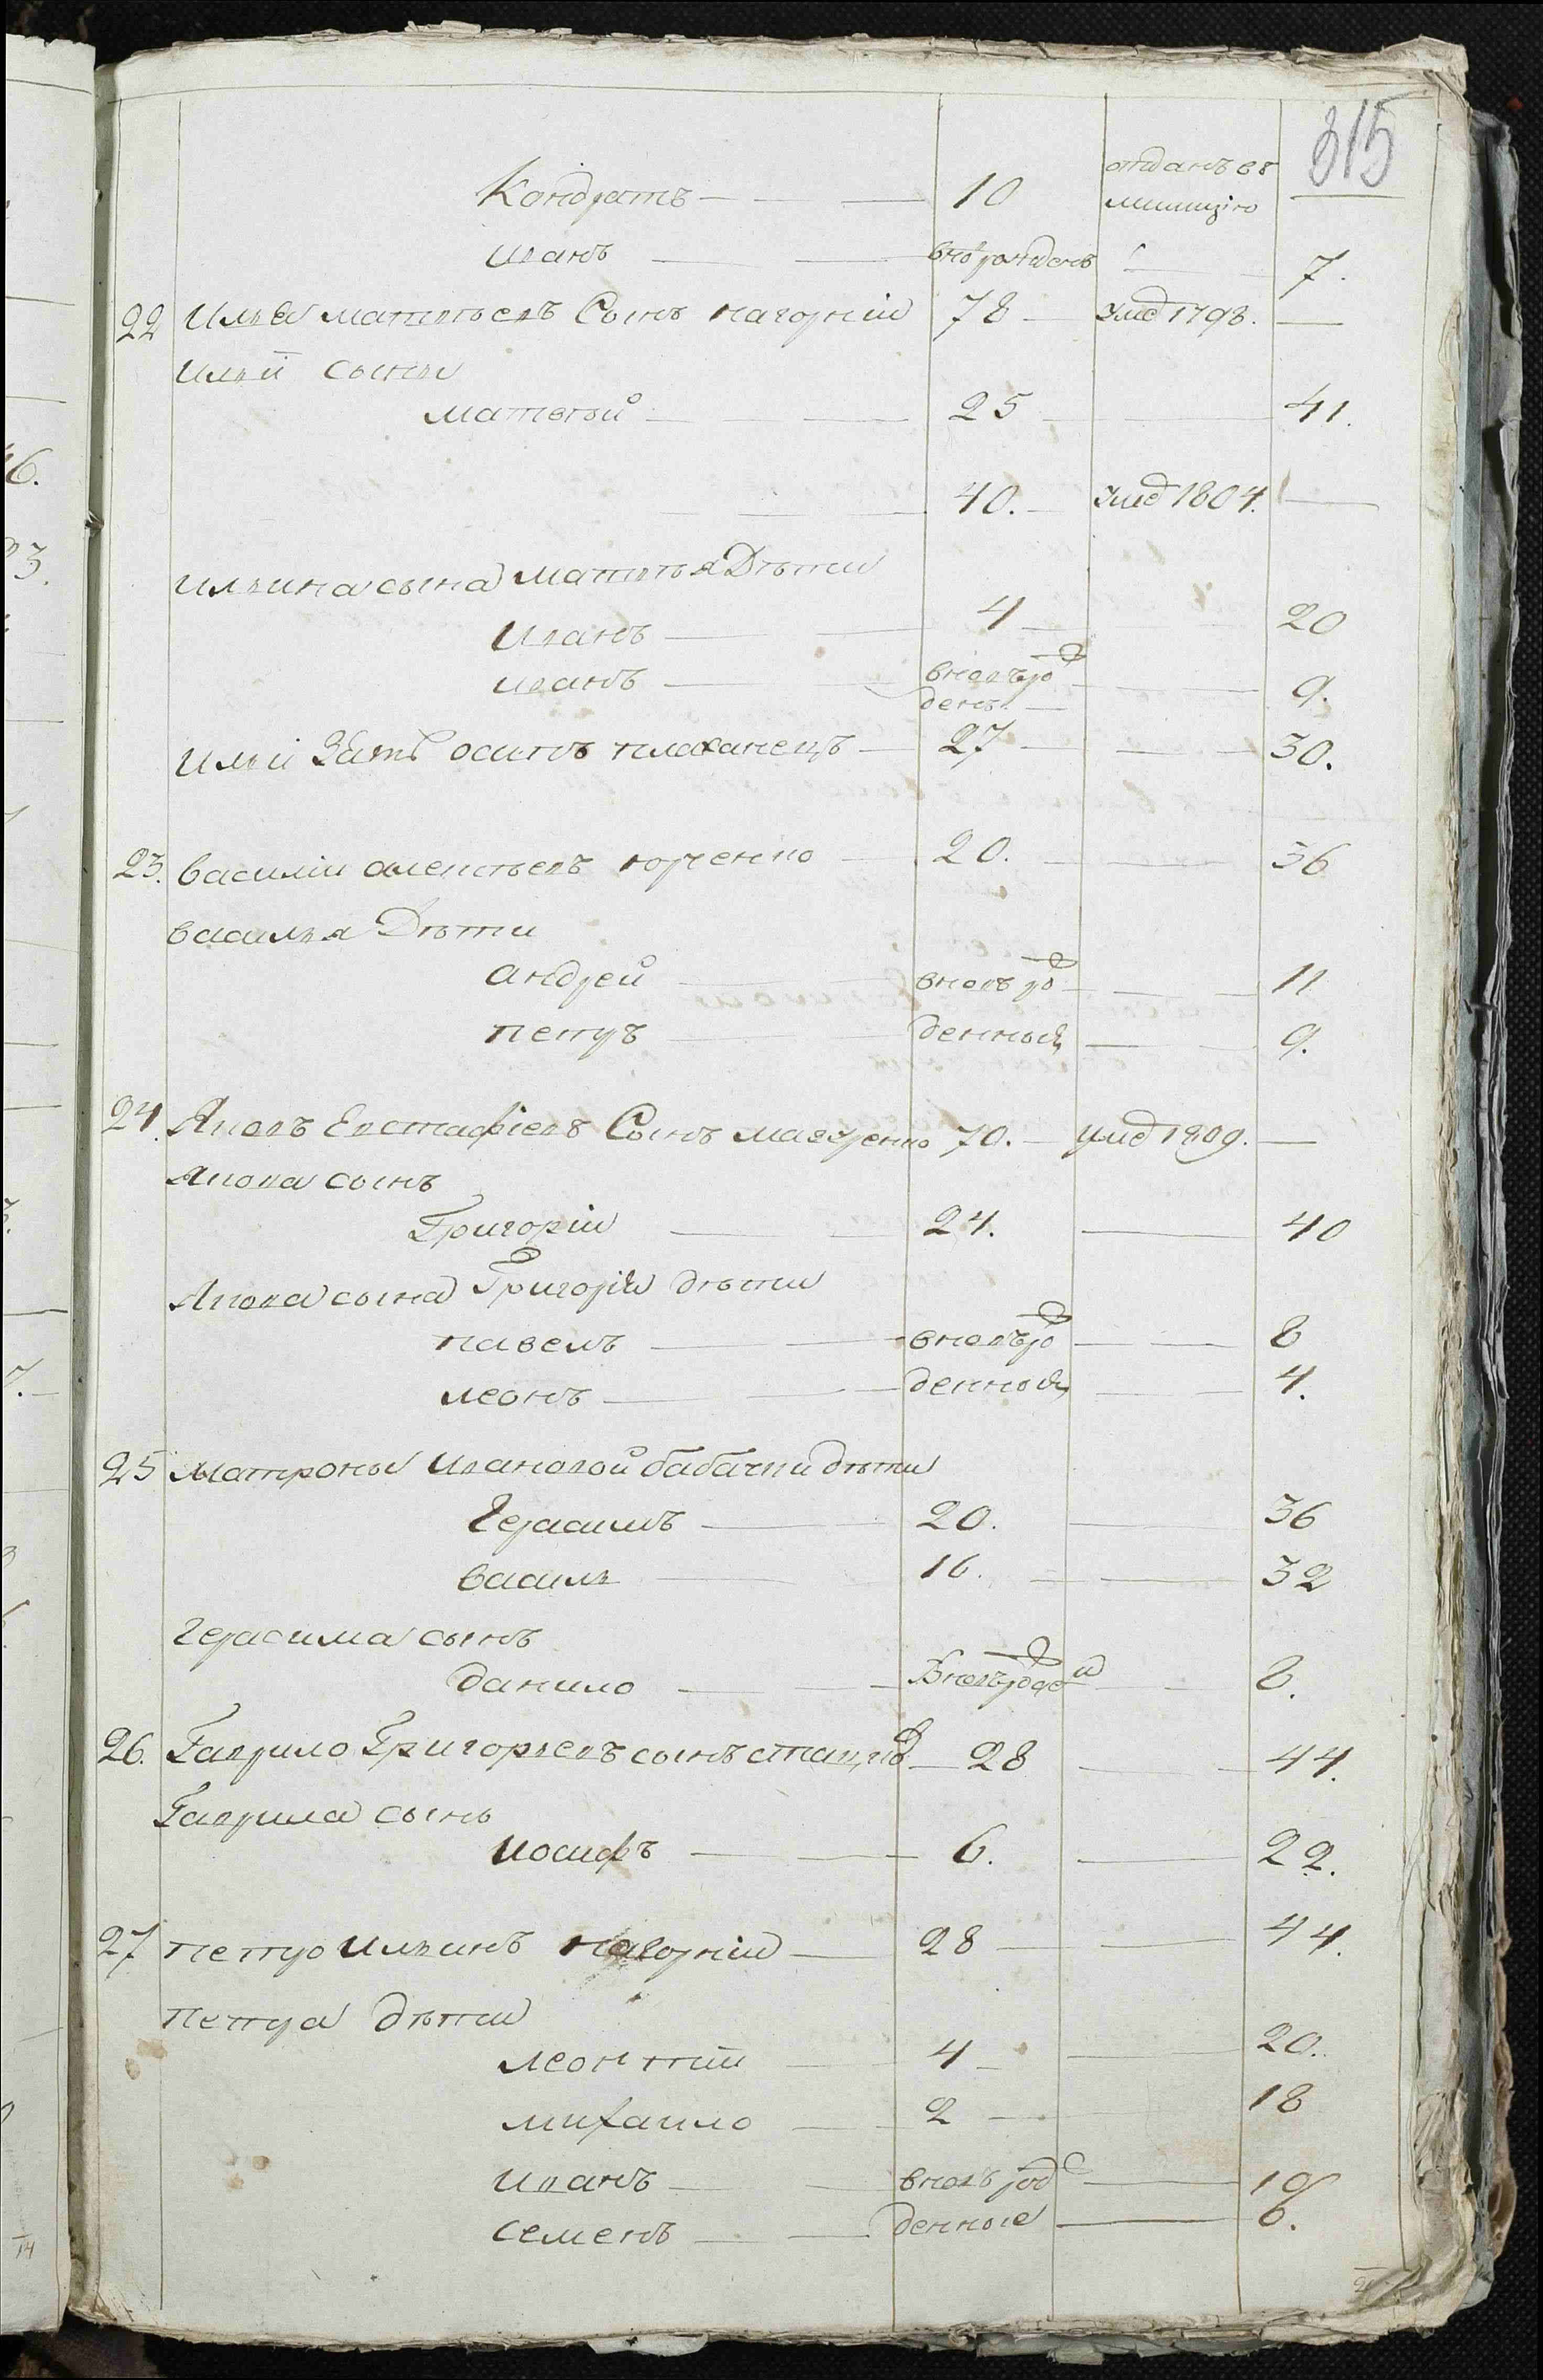 315
Кондратъ 10 отданъ въ милицію
Иванъ вновь рожденъ 7.
22 Илья Матвѣевъ Сынъ нагорній 78 умер 1798.
Ильи сыны
Матвѣй 25 41.
40. умер 1804.
Ильина сына Матвѣя Дѣти
Иванъ 4 20
Иванъ вновь рожденъ 9.
Ильи Зять осипъ плаханецъ 27 30.
23. Василій алексѣевъ юрченко 20. 36
Василья Дѣти
андрей вновь рож 11
петръ денныя 9.
24. Яковъ Евстафіевъ Сынъ мазуренко 70. умер 1809.
Якова сынъ
Григорій 24. 40
Якова сына Григорія дѣти
павелъ вновь рож 8
леонъ денныя 4.
25 матроны Ивановой бабачки дѣти
Герасимъ 20. 36
василь 16. 32
Герасима сынъ
данило Вновь рожде 8.
26. Гаврило Григорьевъ сынъ 28 44.
Гаврила сынъ
Иосифъ 6. 22.
27 петро Ильинъ нагорній 28 44.
петра дѣти
леонтий 4 20.
михаило 2 18
Иванъ вновь рож 10
семенъ денные 6.